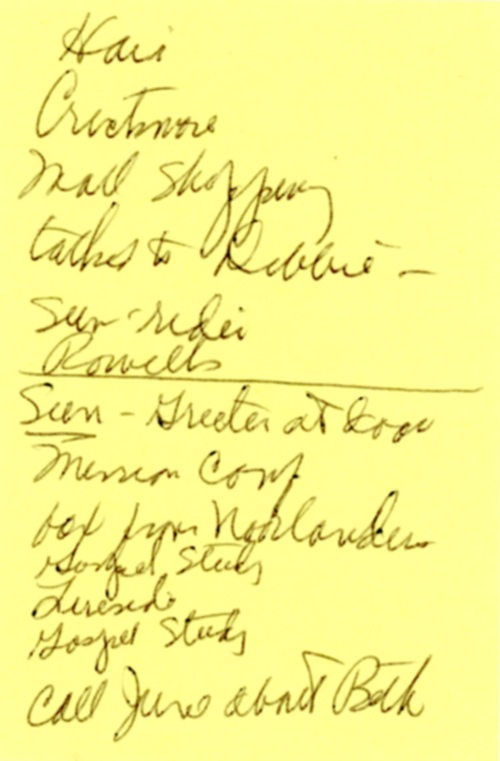 Hair
Mall Shopping
talked to Debbie -
Sun-rider
Rowells
Sun - Greeter at door
Mission Conf
box from Noorlanders
Gospel Study
Fireside
Gospel Study
Call June about Beth